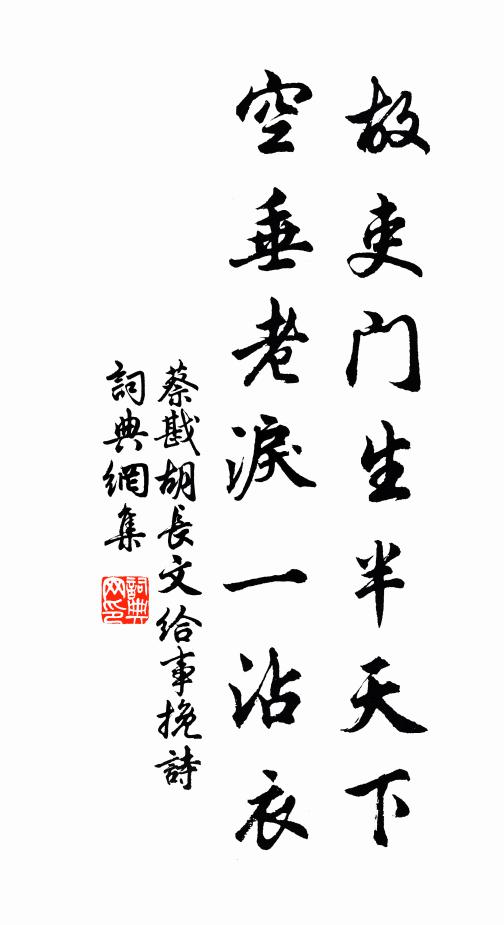 故吏門生半天下
空垂老淚一沾衣
蔡戡胡長文給事挽詩
詞典網集
詞典网印